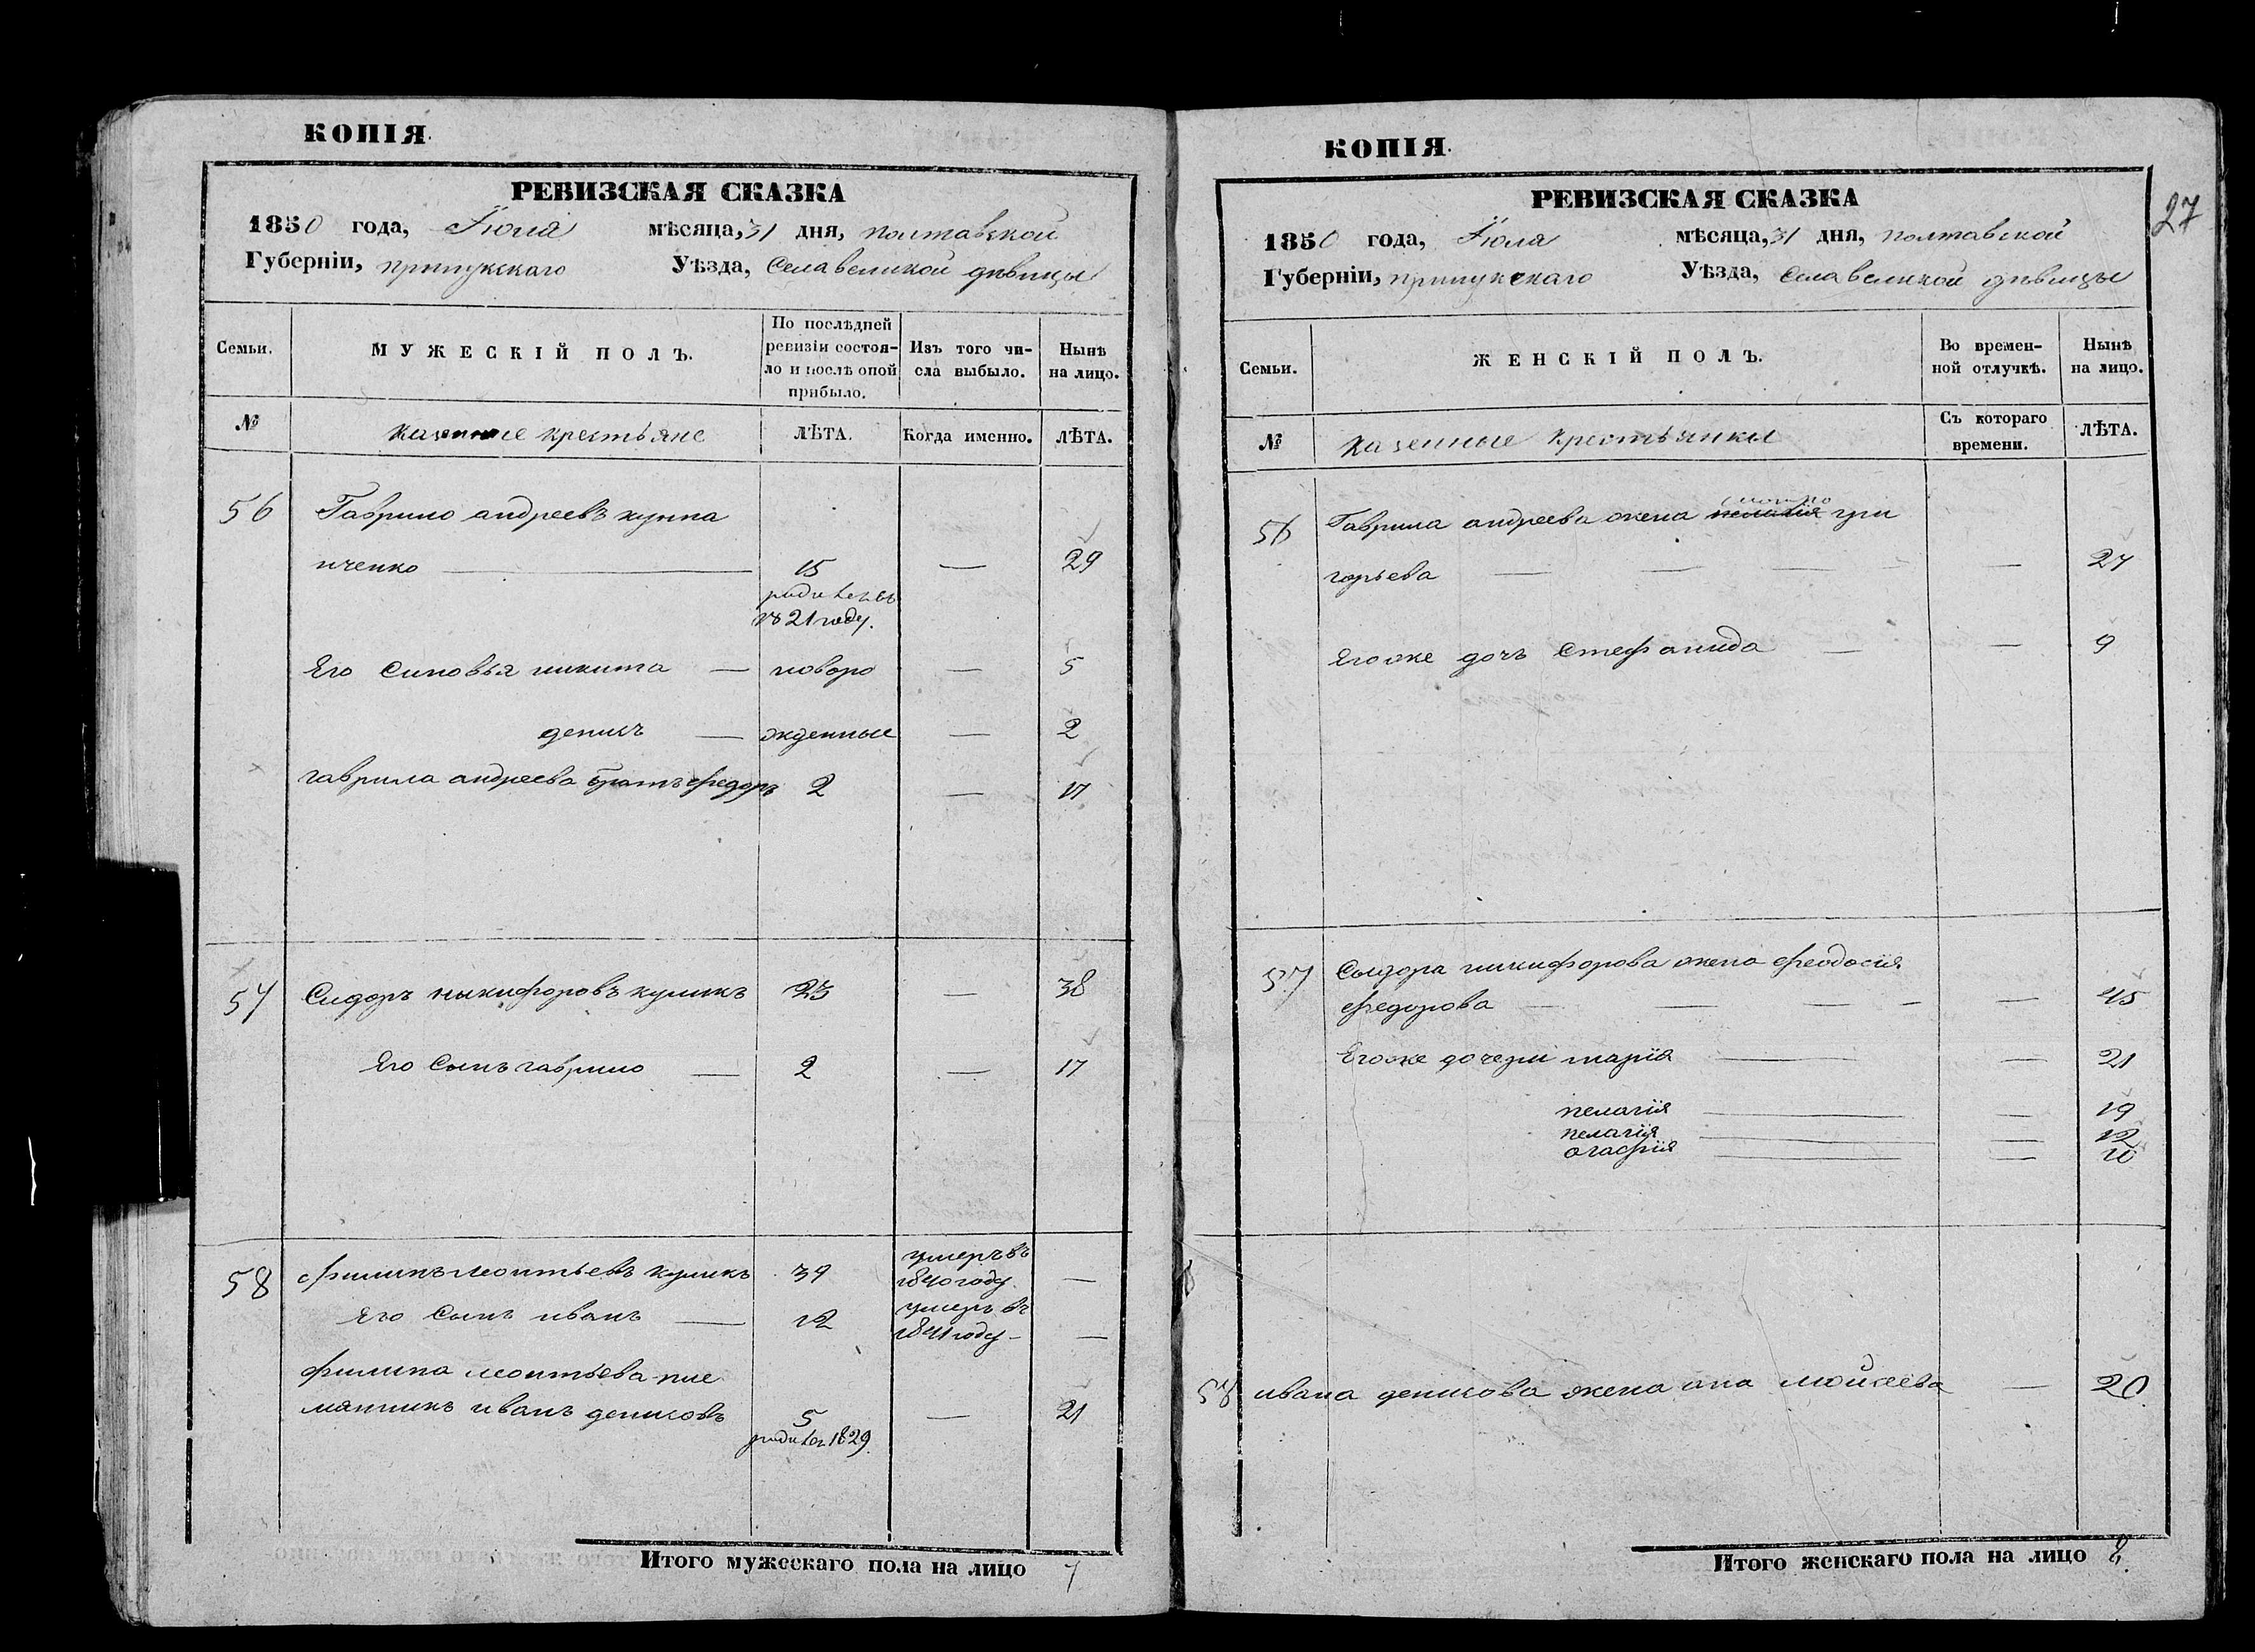 КОПІЯ.
РЕВИЗСКАЯ СКАЗКА
1850 года, Іюля мѣсяца, 31 дня, полтавской
Губерніи, прилукскаго Уѣзда, Села великой дѣвицы
Семьи.
МУЖЕСКІЙ ПОЛЪ.
По послѣдней ревизіи состояло и послѣ оной прибыло.
Изъ того числа выбыло.
Нынѣ на лицо.
№
казенные крестьяне
ЛѢТА.
Когда именно.
ЛѢТА.
56 Гаврило андреевъ
ченко — 15 — 29
1821 году.
Его синовья никита — новоро — 5
денисъ — жденные — 2
гаврила андреева братъ федоръ 2 — 17
57 Сидоръ никифоровъ куликъ 23 — 38
Его Сынъ гаврило — 2 — 17
58 филипъ леонтьевъ куликъ 39 умеръ въ 1840 году —
Его Сынъ иванъ — 12 умеръ въ 1841 году —
филипа леонтьева пле
мянникъ иванъ денисовъ 5 — 21
1829.
Итого мужескаго пола на лицо 7
КОПІЯ.
27
РЕВИЗСКАЯ СКАЗКА
1850 года, Іюля мѣсяца, 31 дня, полтавской
Губерніи, прилукскаго Уѣзда, Села великой дѣвицы
Семьи.
ЖЕНСКІЙ ПОЛЪ.
Во временной отлучкѣ.
Нынѣ на лицо.
№
казенные крестьянки
Съ котораго времени.
ЛѢТА.
56 Гаврила андреева жена гри
горьева — — — — — 27
Егоже дочь Стефанида — — 9
57 Сыдора никифорова жена феодосія
федорова — — — — — 45
Егоже дочери марія — — 21
пелагія — — 19
пелагія — — 12
агафія — — 10
58 ивана денисова жена ана мойсеева — 20
Итого женскаго пола на лицо 8.